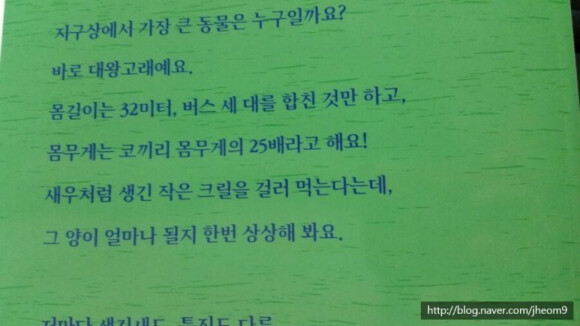 지구상에서 가장 큰 동물은 누구일까요?
바로 대왕고래예요.
몸길이는 32미터, 버스 세 대를 합친 것만 하고,
몸무게는 코끼리 몸무게의 25배라고 해요!
새우처럼 생긴 작은 크릴을 걸러 먹는다는데,
그 양이 얼마나 될지 한번 상상해 봐요.
저마다 생김새도, 특징도 다른
http://blog.naver.com/jheom9